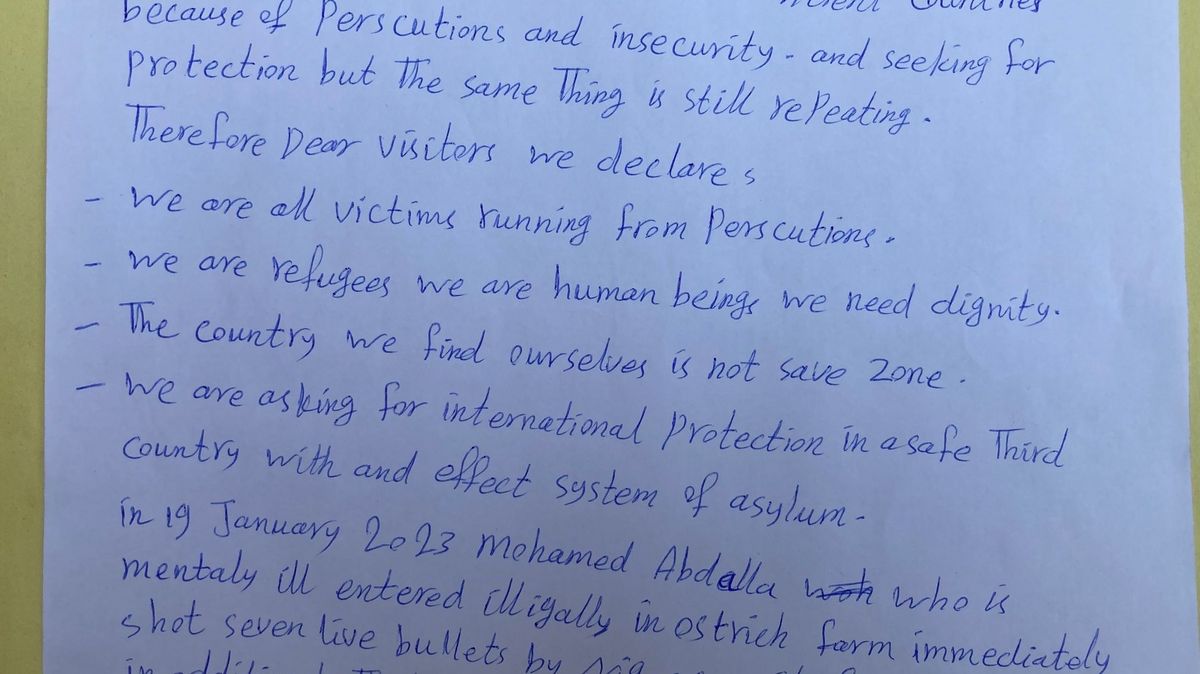 because of Perscutions and insecurity - and seeking for
protection but The same Thing is still rePeating.
Therefore Dear Visitors we declare s
- we are all victims running from Perscutions.
- we are refugees we are human beings we need dignity.
- The country we find ourselves is not save zone.
- we are asking for international Protection in a safe Third
country with and effect system of asylum.
in 19 January 2023 Mohamed Abdalla who is
mentaly ill entered illigally in ostrich farm immediately
shot seven live bullets by